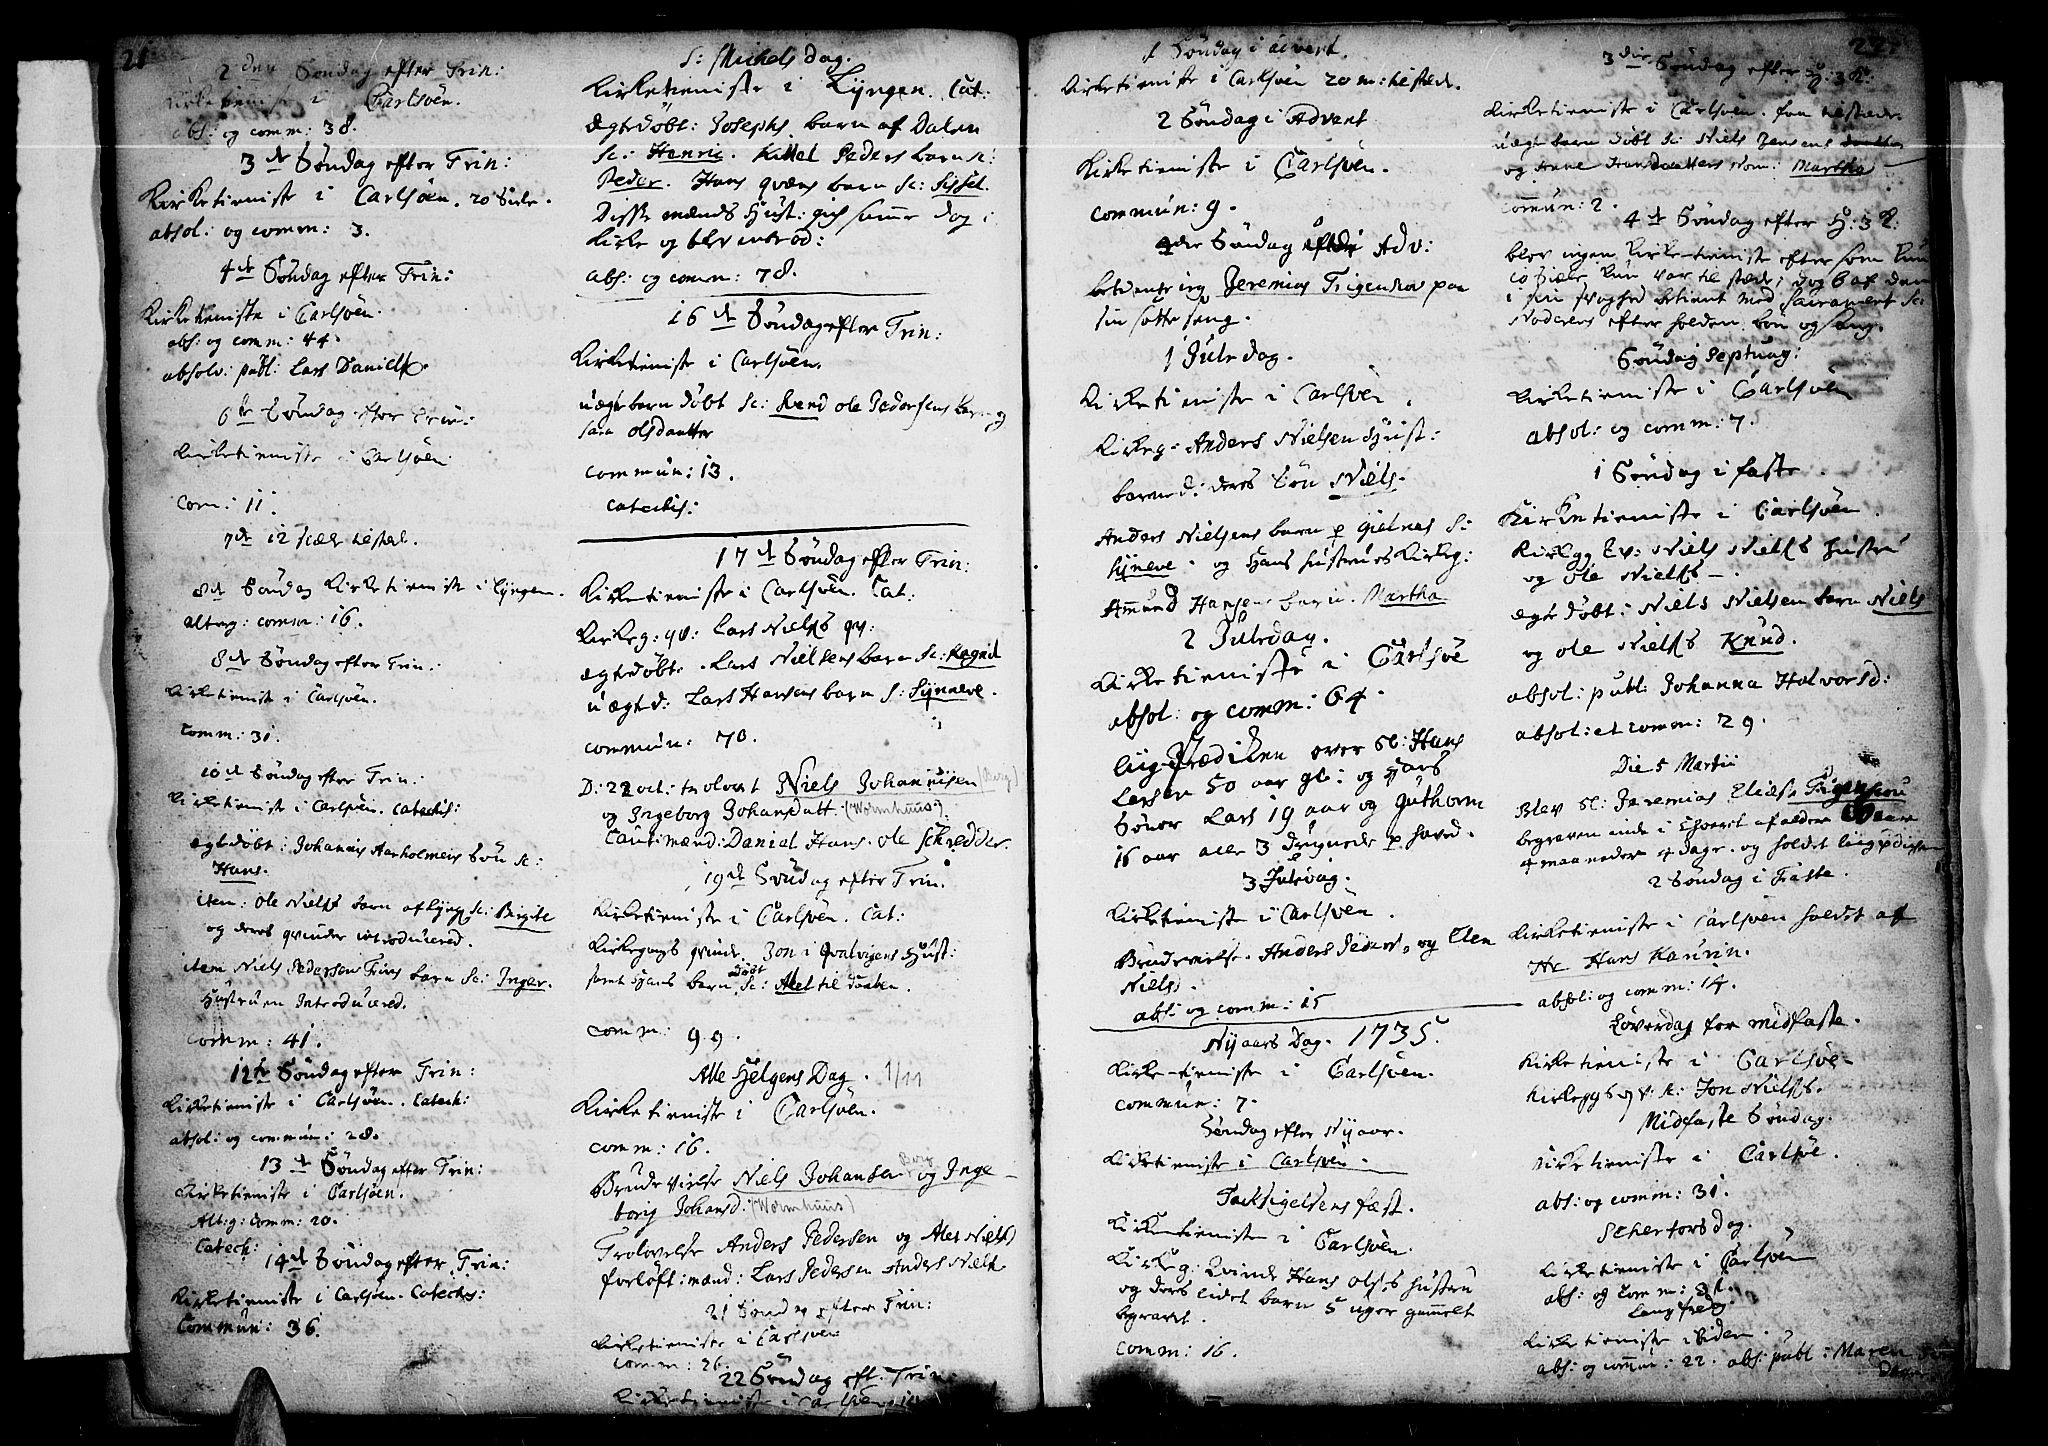 21
2den Søndag efter Trin:
Kirketieniste i Carlsöen.
abs: og comm: 38.
3de Söndag efter Trin:
Kirketieniste i Carlsöen. 20 Siele.
absol: og comm: 3.
4de Söndag efter Trin:
Kirketieniste i Carlsöen.
abs: og comm: 44.
absolv: publ: Lars Daniels.
6te Söndag efter Trin:
Kirketieniste i Carlsöen
Com: 11.
7de 12 siæle tilstede.
8de Söndag Kirketieniste i Lyngen.
alterg: comm: 16.
8de Söndag efter Trin:
Kirketienist i Carlsöen.
Comm: 31.
10de Söndag efter Trin:
Kirketienist i Carlsöen. Catechis:
egte döbt: Johannis Aarholmens Sön Sc:
Hans.
item: Ole Nielss barn af Lyng Sc: Birgite
og deres qvinder introducered.
item Niels Pedersen barn Sc: Inger.
Hustruen Introducered.
Comm: 41.
12te Söndag efter Trin:
Kirketieniste i Carlsöen. Catech:
absol: og commun: 28.
13de Söndag efter Trin:
Kirketieniste i Carlsöen.
Alt:g: Comm: 20.
Catech:
14de Söndag efter Trin:
Kirketieniste i Carlsöen. Catechis:
Commun: 36.
S: Michels dag.
Kirketieniste i Lyngen. Cat:
Egte döbt: Josephs barn af Dalen
Sc: Henric. Kittel Peders barn Sc:
Peder. Hans qvæns barn Sc: Sissel.
Disse mænds Hust: gich samme dag i
Kirke og blev introd:
abs: og comm: 78.
16de Söndag efter Trin:
Kirketieniste i Carlsöen.
uægte barn döbt Sc: Svend Ole Pedersens barn og
Sara Olsdaatter
commun: 13.
catechis:
17de Söndag efter Trin:
Kirketieniste i Carlsöen. Cat:
Kirkeg: qv: Lars Nielss qv:
egte döbt. Lars Nielsens barn Sc: Ragnil
uægte d: Lars Hansens barn S: Synneve.
commun: 70.
D: 22 oct: trolovet Niels Johannisen (Berg)
og Ingeborg Johansdatt. (Wormhuus)
Cautimænd: Daniel Hans. Ole Schredder.
19de Söndag efter Trin.
Kirketieniste i Carlsöen. Cat:
Kirkegangs qvinde. Jon i Qvalvigens Hust:
samt hans barn döbt Sc: Alet til daaben.
comm: 99.
Alle Helgens Dag. 1/11
Kirketieniste i Carlsöen.
comm: 16.
Brudevielse Niels Johansen Berg og Inge-
borg Johansd: (Wormhuus)
Trolovelse Anders Pedersen og Alet Nielss
forloft: mænd: Lars Pedersen Anders Nielss
21 Söndag efter Trin:
Kirketieniste i Carlsöen
comm: 26.
22 Söndag eft. Trin.
Kirketieniste i Carlsöen
1 Söndag i advent.
Kirketieniste i Carlsöen 20 m: tilstede.
2 Söndag i Advent
Kirketieniste i Carlsöen.
commun: 9.
3die Söndag i Adv:
betiente ieg Jeremias Figenschou paa
sin sotte seng.
1 Juledag.
Kirketieniste i Carlsöen.
Kirkeg: Anders Nielsen Hust:
barne d: deres Sön Niels.
Anders Nielsens barn p Gietnes S:
Synneve. og Hans hustrues Kirkeg:
Amund Hansens barn. Martha
2 Juledag.
Kirketieniste i Carlsöe
absol: og comm: 64.
liigprædiken over Sl: Hans
Larsen 50 aar gl: og hans
Sönner Lars 19 aar og Guthorm
16 aar alle 3 drugnede p haved.
3 Juledag.
Kirketieniste i Carlsöen.
Brudevielse. Anders Peders. og Elen
Nielsd.
abs: og comm: 15
Nyaars Dag. 1735.
Kirke-tieniste i Carlsöen.
commun: 7.
Söndag efter Nyaar.
Kirketieniste i Carlsöen.
Tacksigelsens fæst.
Kirketieniste i Carlsöen.
Kirkeg: Qvinde Hans Olss hustru
og deres lidet barn 5 uger gammelt
begravet.
comm: 16.
22.
3die Söndag efter H: 3 K:
Kirketieniste i Carlsöen. faa tilstede
uægte barn döbt Sc: Niels Jensens
og Anne Hansdaatters Nom: Martha
commun: 2.
4de Söndag efter H: 3 K:
blev ingen Kirke-tieniste efter som kun
10 Siæle kun var til stede, dog 6 af dem
i sin svaghed betient med Sacramentet
Noderens efter holden bön og sang.
Söndag Septuag:
Kirketieniste i Carlsöen
absol: og comm: 7.
1 Söndag i faste
Kirketieniste i Carlsöen.
Kirkeg. Qv: Niels Nielss Hustru
og Ole Nielss –.
egte döbt: Niels Nielsen barn Niels
og Ole Nielss Knud.
absol: publ: Johanna Halvorsd:
absol: et comm: 29.
Die 5 Martii
Blev Sl: Jeremias Eliess. Figenschou
begraven inde i Choret af alder aar
4 maaneder 4 dage. og holdet liigprediken
2 Söndag i Faste.
Kirketieniste i Carlsöen holdet af
Hr Hans Kaurin.
absol: og comm: 14.
Löverdag for midfaste.
Kirketieniste i Carlsöe
Kirkegangs qv: Sc: Jon Nielss.
Midfaste Söndag.
Kirketieniste i Carlsöe.
abs: og comm: 31.
Schertorsdag.
Kirketieniste i Carlsöen
abs: og Comm:
Langfredag
Kirketieniste ibidem.
abs: og commun: 22. abs: publ: Maren